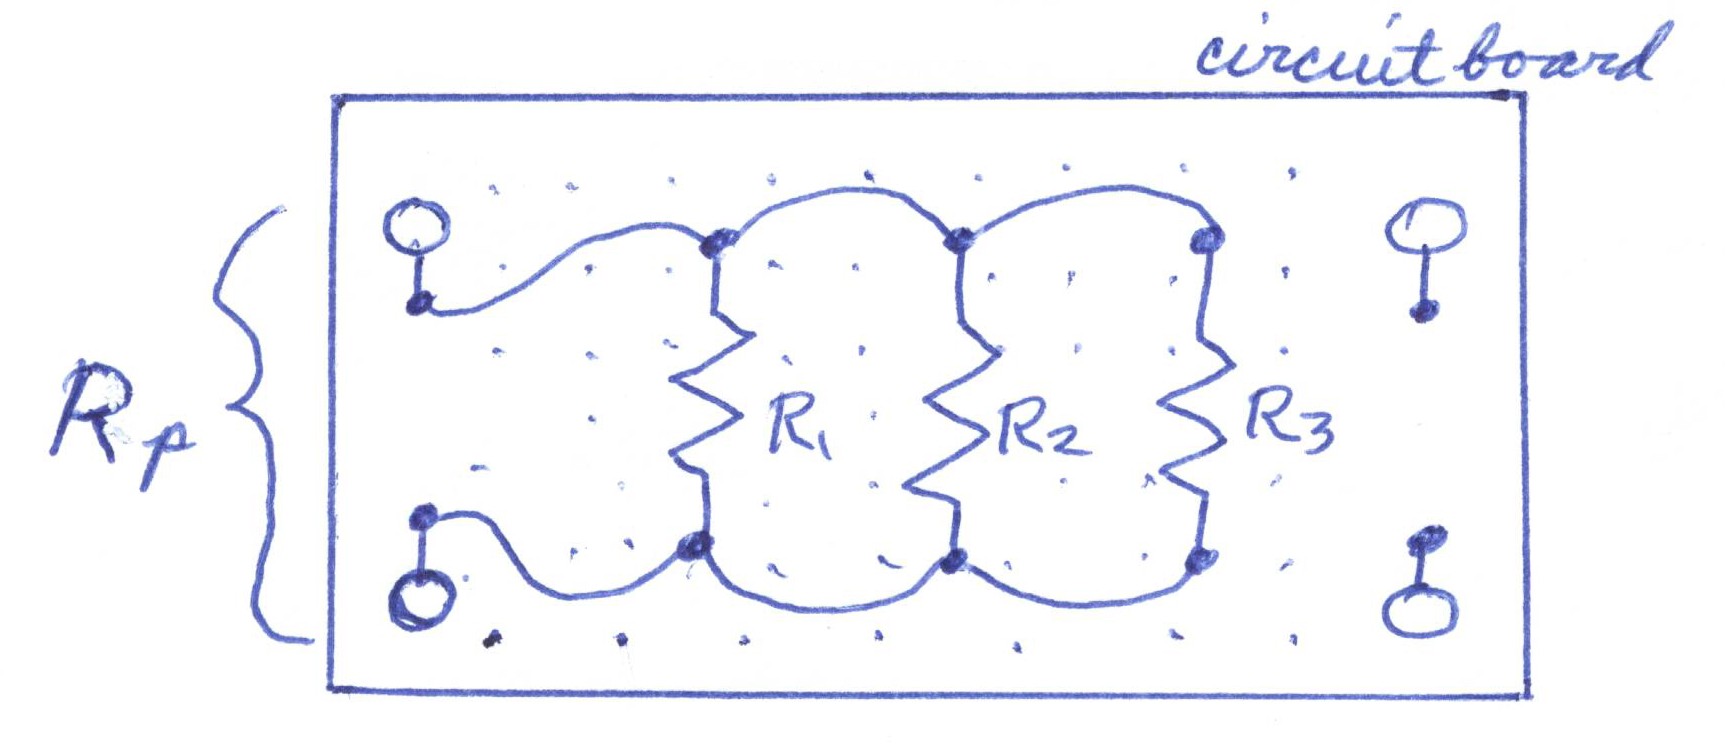 circuit board
Rp
R1
R2
R3